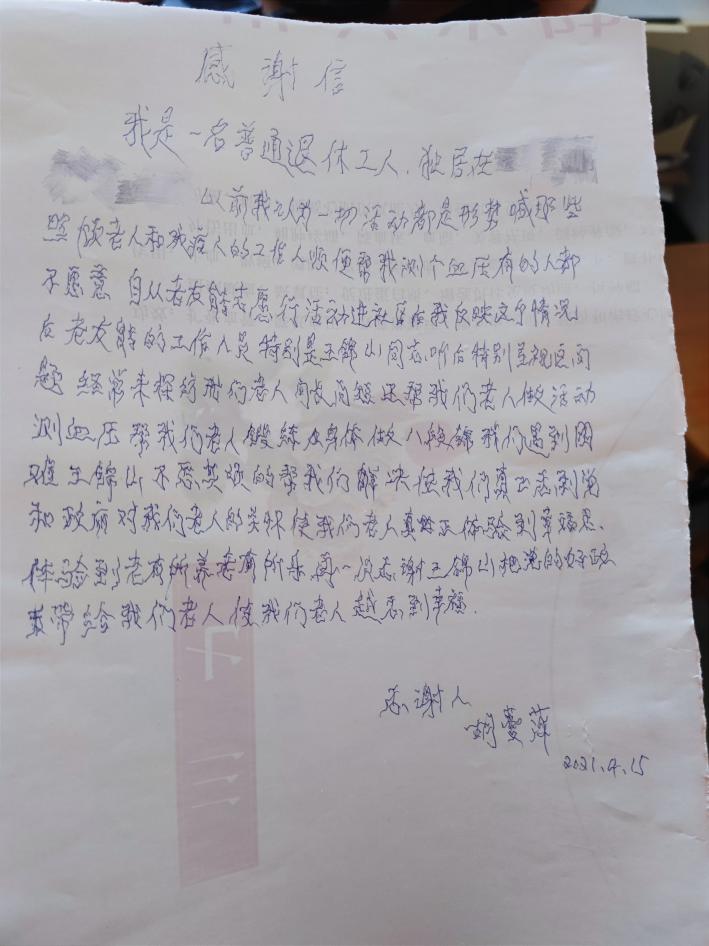 感谢信
我是一名普通退休工人，独居在
以前我认为一切活动都是形势喊那些
照顾老人和残疾人的工作人烦便帮我测个血压有的人都
不愿意 自从老友能志愿行活动进社区后我反映这个情况
后老友能的工作人员特别是王锦山同志听后特别重视这问
题 经常来探访我们老人问长问短还帮我们老人做活动
测血压帮我们老人锻练身体做八段锦我们遇到困
难王锦山不厌其烦的帮我们解决使我们真正感到党
和政府对我们老人的关怀使我们老人真正体验到幸福感
体验到老有所养老有所乐再一次感谢王锦山把党的好政
策带给我们老人使我们老人越感到幸福.
感谢人
胡蔓萍
2021.4.15